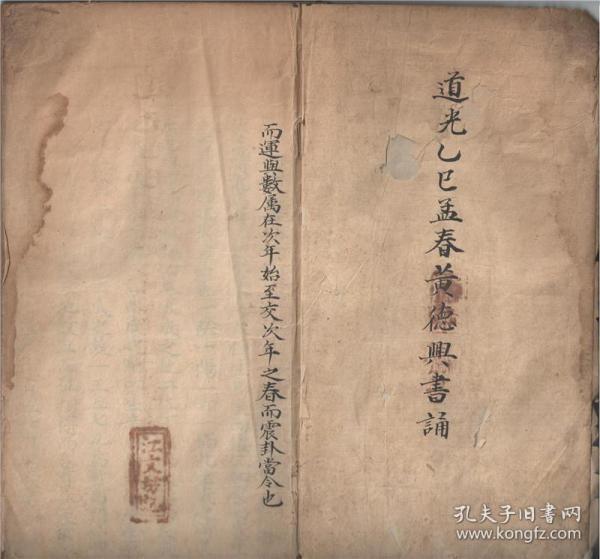 道光乙巳孟春黃德興書誦
而運與數屬在次年始至交次年之春而震卦當令也
孔夫子旧书网
www.kongfz.com